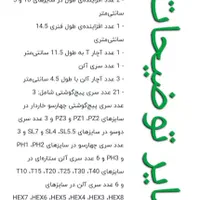 سایر توضیحات
سانتی‌متر
- 1 عدد افزاینده‌ی طول فنری 14.5
سانتی‌متری
- 1 عدد آچار T به طول 11.5 سانتی‌متر
- 1 عدد سری آلن
- 3 عدد آچار آلن با طول 4.5 سانتی‌متر
- 21 عدد سری پیچ‌گوشتی شامل: 3
سری پیچ‌گوشتی چهارسو خاردار در
سایزهای PZ1، PZ2 و PZ3 و 3 عدد سری
دوسو در سایزهای SL5.5، SL4 و SL7 و 3
عدد سری چهارسو در سایزهای PH1، PH2
و PH3 و 6 عدد سری آلن ستاره‌ای در
سایزهای T10، T15، T20، T25، T30، T40
و 6 عدد سری آلن در سایزهای
HEX7 ،HEX6 ،HEX5 ،HEX4 ،HEX3 ،HEX8